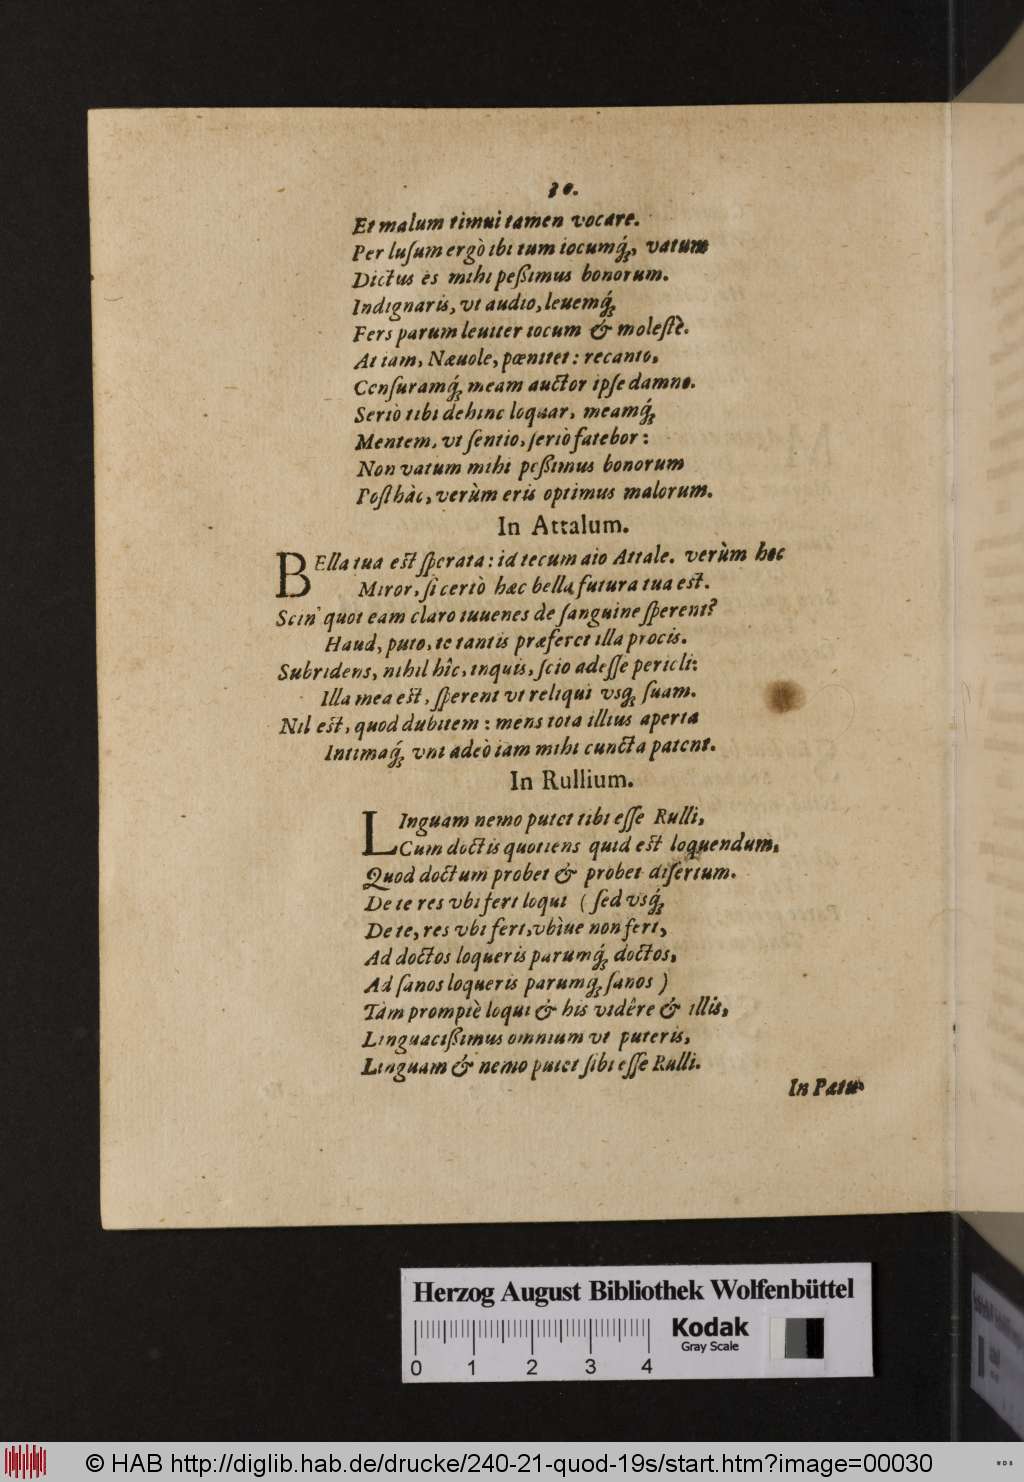 30.
Et malum timui tamen vocare.
Per luſum ergò ibi tum iocumq́ꝫ, vatum
Dictus es mihi peßimus bonorum.
Indignaris, vt audio, leuemq́ꝫ
Fers parum leuiter iocum & moleſtè.
At iam, Næuole, pœnitet: recanto,
Cenſuramq́ꝫ meam auctor ipſe damno.
Seriò tibi dehinc loquar, meamq́ꝫ
Mentem, vt ſentio, ſeriò fatebor:
Non vatum mihi peßimus bonorum
Poſthàc, verùm eris optimus malorum.
In Attalum.
BElla tua eſt ſperata: id tecum aio Attale. verùm hoc
Miror, ſi certò hæc bella futura tua eſt.
Scin' quot eam claro iuuenes de ſanguine ſperent?
Haud, puto, te tantis præferet illa procis.
Subridens, nihil hîc, inquis, ſcio adeſſe pericli:
Illa mea eſt, ſperent vt reliqui vsqꝫ ſuam.
Nil eſt, quod dubitem: mens tota illius aperta
Intimaq́ꝫ vni adeò iam mihi cuncta patent.
In Rullium.
LInguam nemo putet tibi eſſe Rulli,
Cum doctis quotiens quid eſt loquendum,
Quod doctum probet & probet diſertum.
De te res vbi fert loqui (ſed vsq́ꝫ
De te, res vbi fert, vbìue non fert,
Ad doctos loqueris parumq́ꝫ doctos,
Ad ſanos loqueris parumqꝫ ſanos)
Tàm promptè loqui & his vidêre & illis,
Linguacißimus omnium vt puteris,
Linguam & nemo putet ſibi eſſe Rulli.
In Patu-
Herzog August Bibliothek Wolfenbüttel
Kodak
Gray Scale
0 1 2 3 4
© HAB http://diglib.hab.de/drucke/240-21-quod-19s/start.htm?image=00030